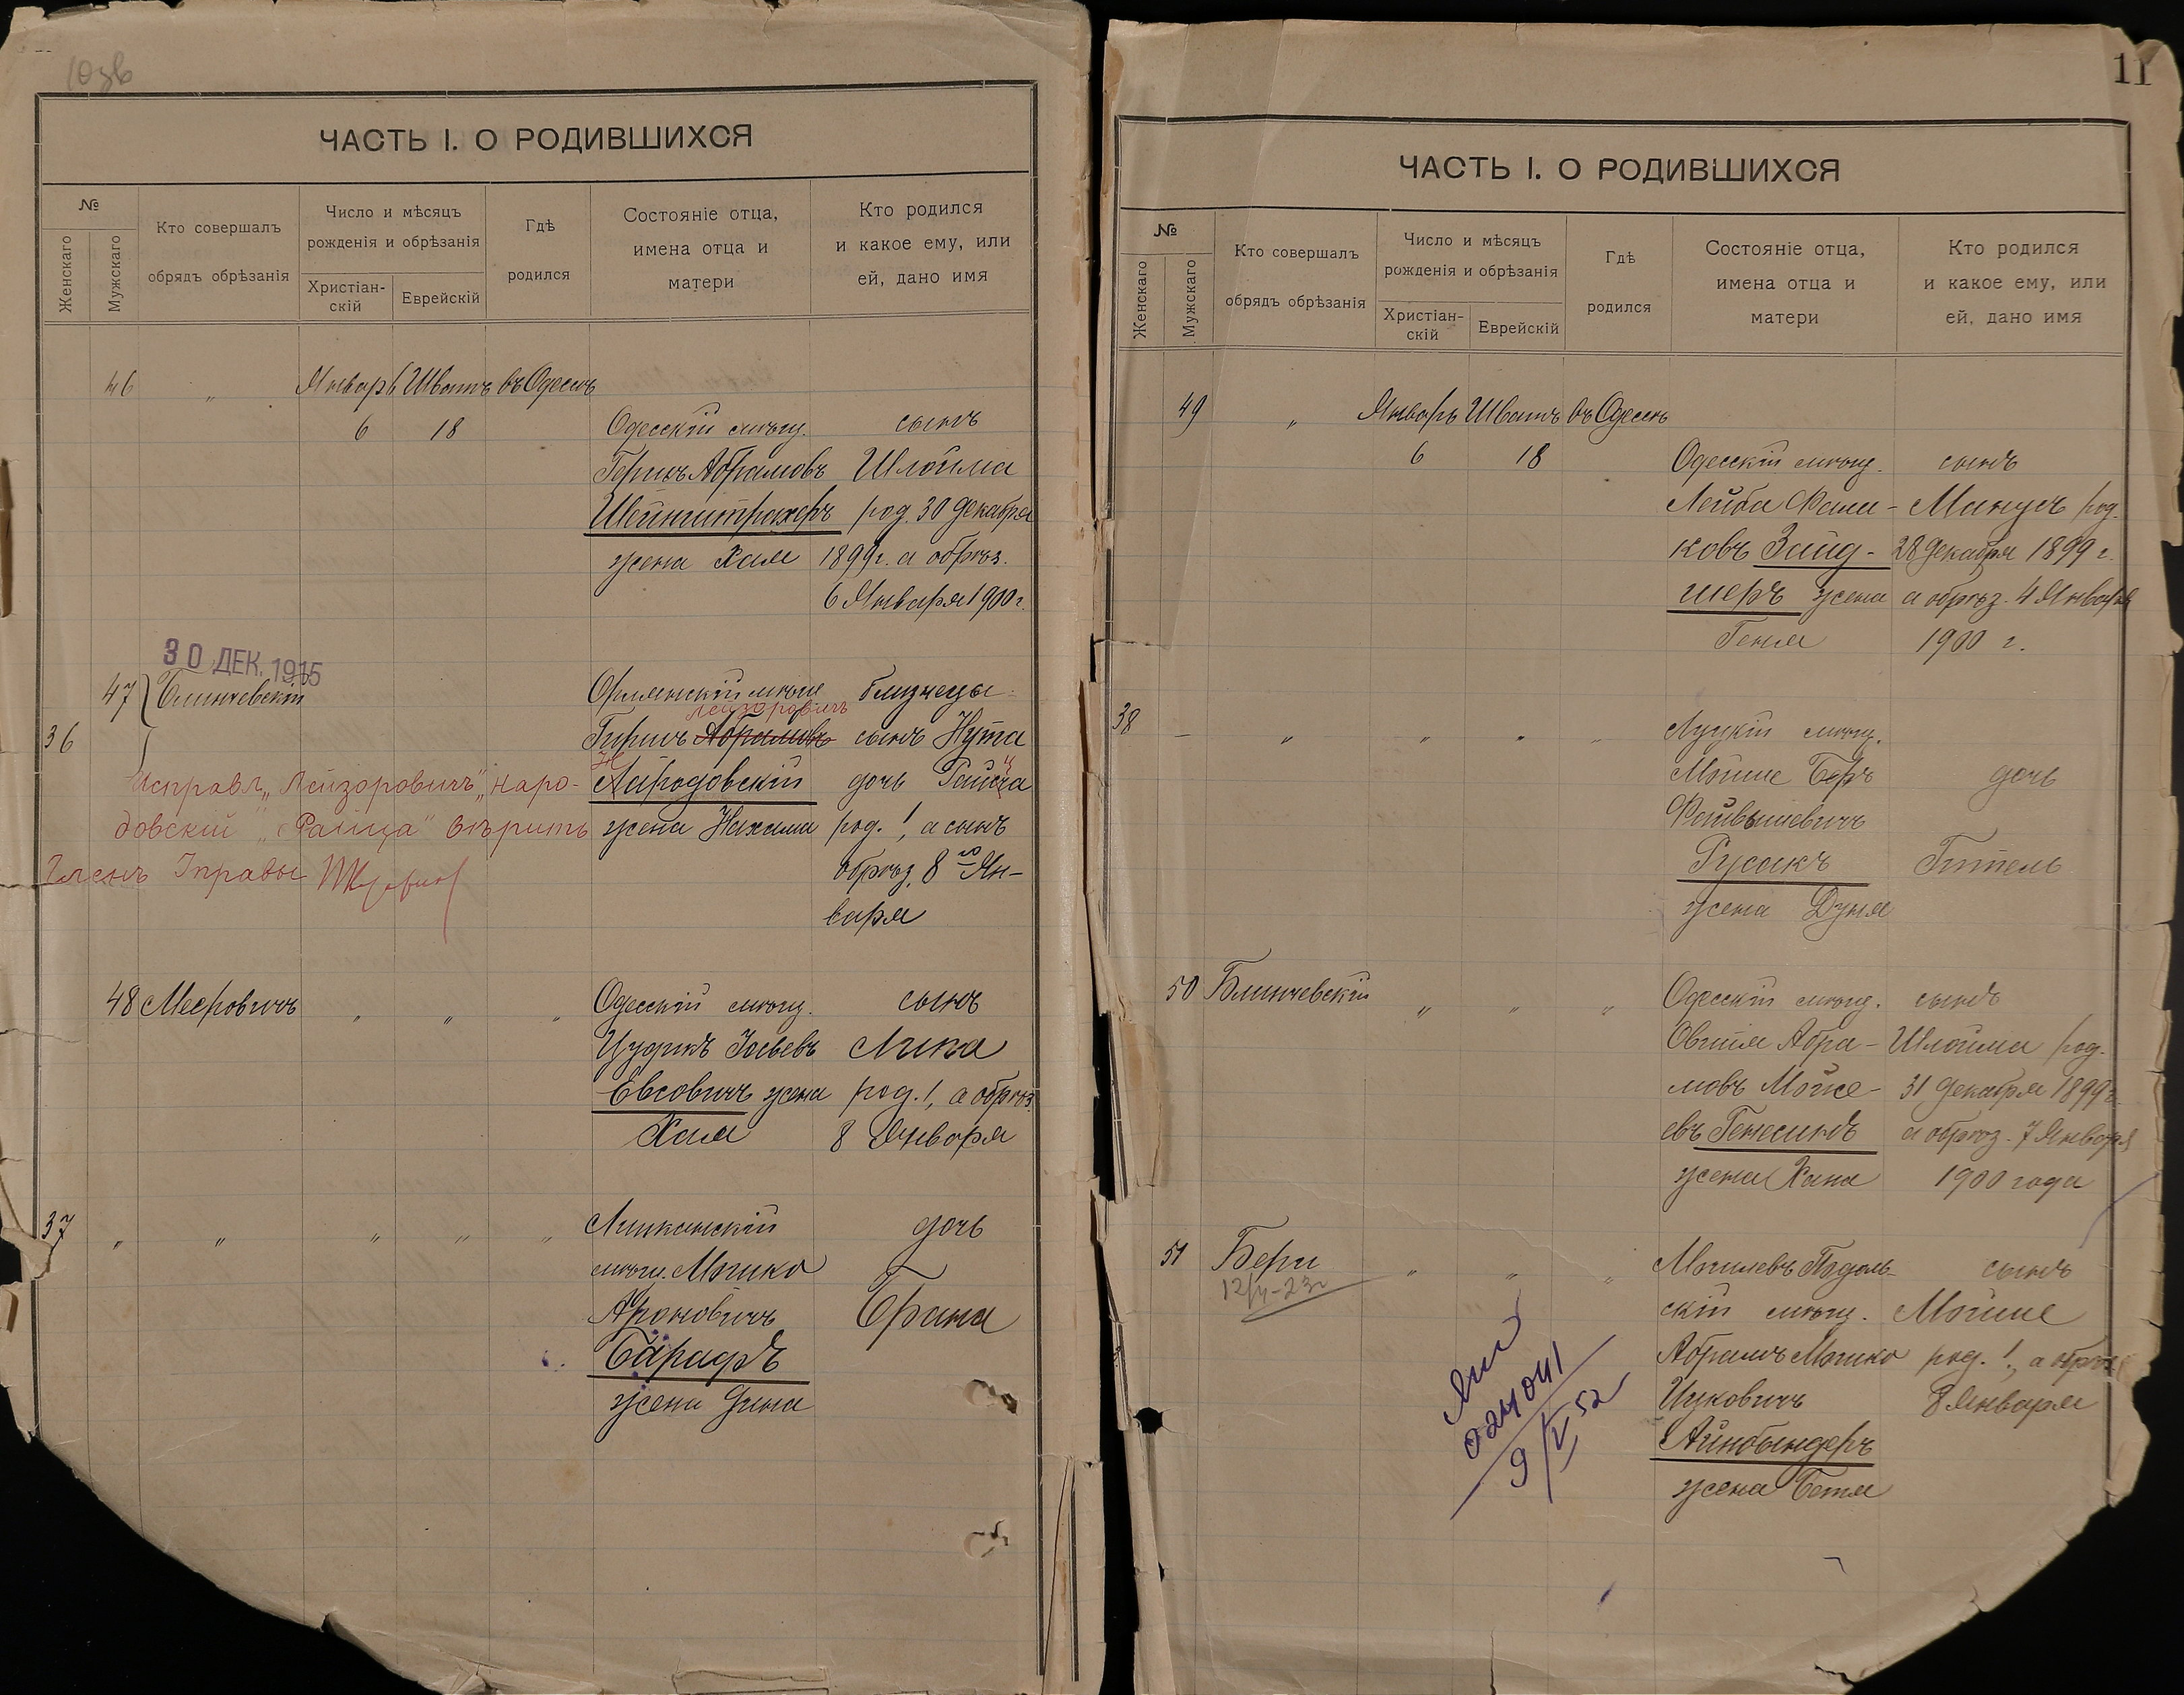 10зв
ЧАСТЬ I. О РОДИВШИХСЯ
№
Женскаго
Мужскаго
Кто совершалъ
обрядъ обрѣзанія
Число и мѣсяцъ
рожденія и обрѣзанія
Христіан-
скій
Еврейскій
Гдѣ
родился
Состояніе отца,
имена отца и
матери
Кто родился
и какое ему, или
ей, дано имя
46 „ Январь Шватъ въ Одессѣ
6 18 Одесскій мѣщ. сынъ
Гершъ Абрамовъ Шлойма
Шейнштрахеръ род. 30 декабря
жена Хая 1899 г. а обрѣз.
6 Января 1900 г.
30 ДЕК. 1915
47 Блинчевскій мѣщ близнецы
Лейзоровичъ
36 Гершъ Абрамовъ сынъ Нута
Н ц
Народовскій дочь Райса
Исправл. „Лейзоровичъ„ Наро-
довскій „Райца" вѣрить жена Нахама род. 1, а сынъ
Членъ Управы
обрѣз. 8го Ян-
варя
48 Меєровичъ „ „ „ Одесскій мѣщ. сынъ
Цудикъ Іосьевъ Липа
Евсовичъ жена род. 1, а обрѣз.
Хая 8 Января
37 „ „ „ „ „ Липканскій дочь
мѣщ. Мошко
Ароновичъ Брана
Барадъ
жена Дина
11
ЧАСТЬ I. О РОДИВШИХСЯ
№
Женскаго
Мужскаго
Кто совершалъ
обрядъ обрѣзанія
Число и мѣсяцъ
рожденія и обрѣзанія
Христіан-
скій
Еврейскій
Гдѣ
родился
Состояніе отца,
имена отца и
матери
Кто родился
и какое ему, или
ей, дано имя
49 „ Январь Шватъ въ Одессѣ
6 18 Одесскій мѣщ. сынъ
Лейба Фали- Манусъ род.
ковъ Зайд- 28 декабря 1899 г.
шеръ жена а обрѣз. 4 Января
Геня 1900 г.
38 – „ „ „ „ Луцкій мѣщ.
Мойше Беръ дочь
Файвышевичъ
Русакъ Гитель
жена Дуня
50 Блинчевскій „ „ „ Одесскій мѣщ. сынъ
Овшія Абра- Шлойма род.
мовъ Мойсе- 31 декабря 1899 г.
евъ Генесинъ а обрѣз. 7 Января
жена Хана 1900 года
51 Бери „ „ „ Могилевъ Подоль- сынъ
скій мѣщ. Мойше
Абрамъ Мошко род. 1, а обрѣз.
Ицковичъ 8 Января
Айнбындеръ
жена Бетя
024041
9/V 52